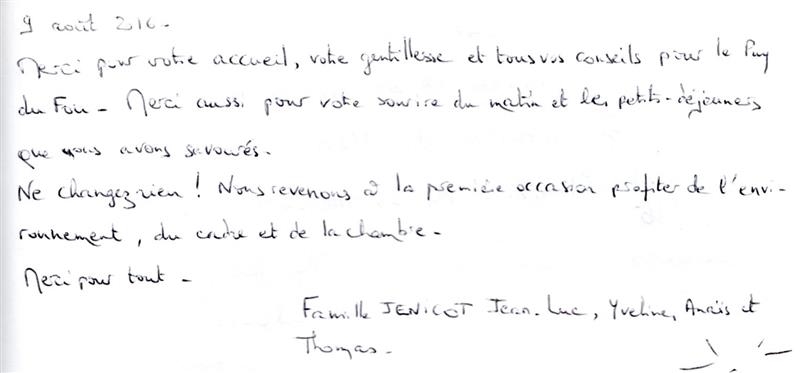 9 août 216.
Merci pour votre accueil, votre gentillesse et tous vos conseils pour le Puy
du Fou - Merci aussi pour votre sourire du matin et les petits-déjeuners
que nous avons savourés.
Ne changez rien ! Nous revenons à la première occasion profiter de l'envi-
ronnement, du cadre et de la chambre -
Merci pour tout -
Famille JENICOT Jean-Luc, Yveline, Anaïs et
Thomas -